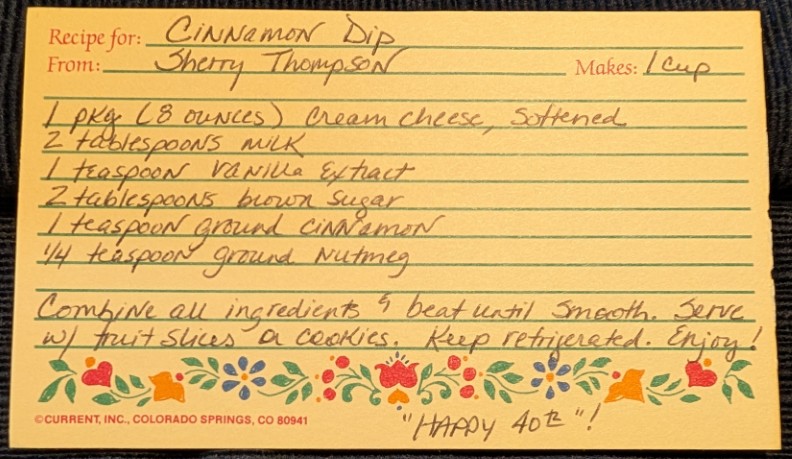 Recipe for: Cinnamon Dip
From: Sherry Thompson Makes: 1 cup
1 pkg (8 ounces) cream cheese, softened
2 tablespoons milk
1 teaspoon vanilla extract
2 tablespoons brown sugar
1 teaspoon ground cinnamon
1/4 teaspoon ground nutmeg
Combine all ingredients & beat until smooth. Serve
w/ fruit slices or cookies. Keep refrigerated. Enjoy!
©CURRENT, INC., COLORADO SPRINGS, CO 80941
"HAPPY 40th"!